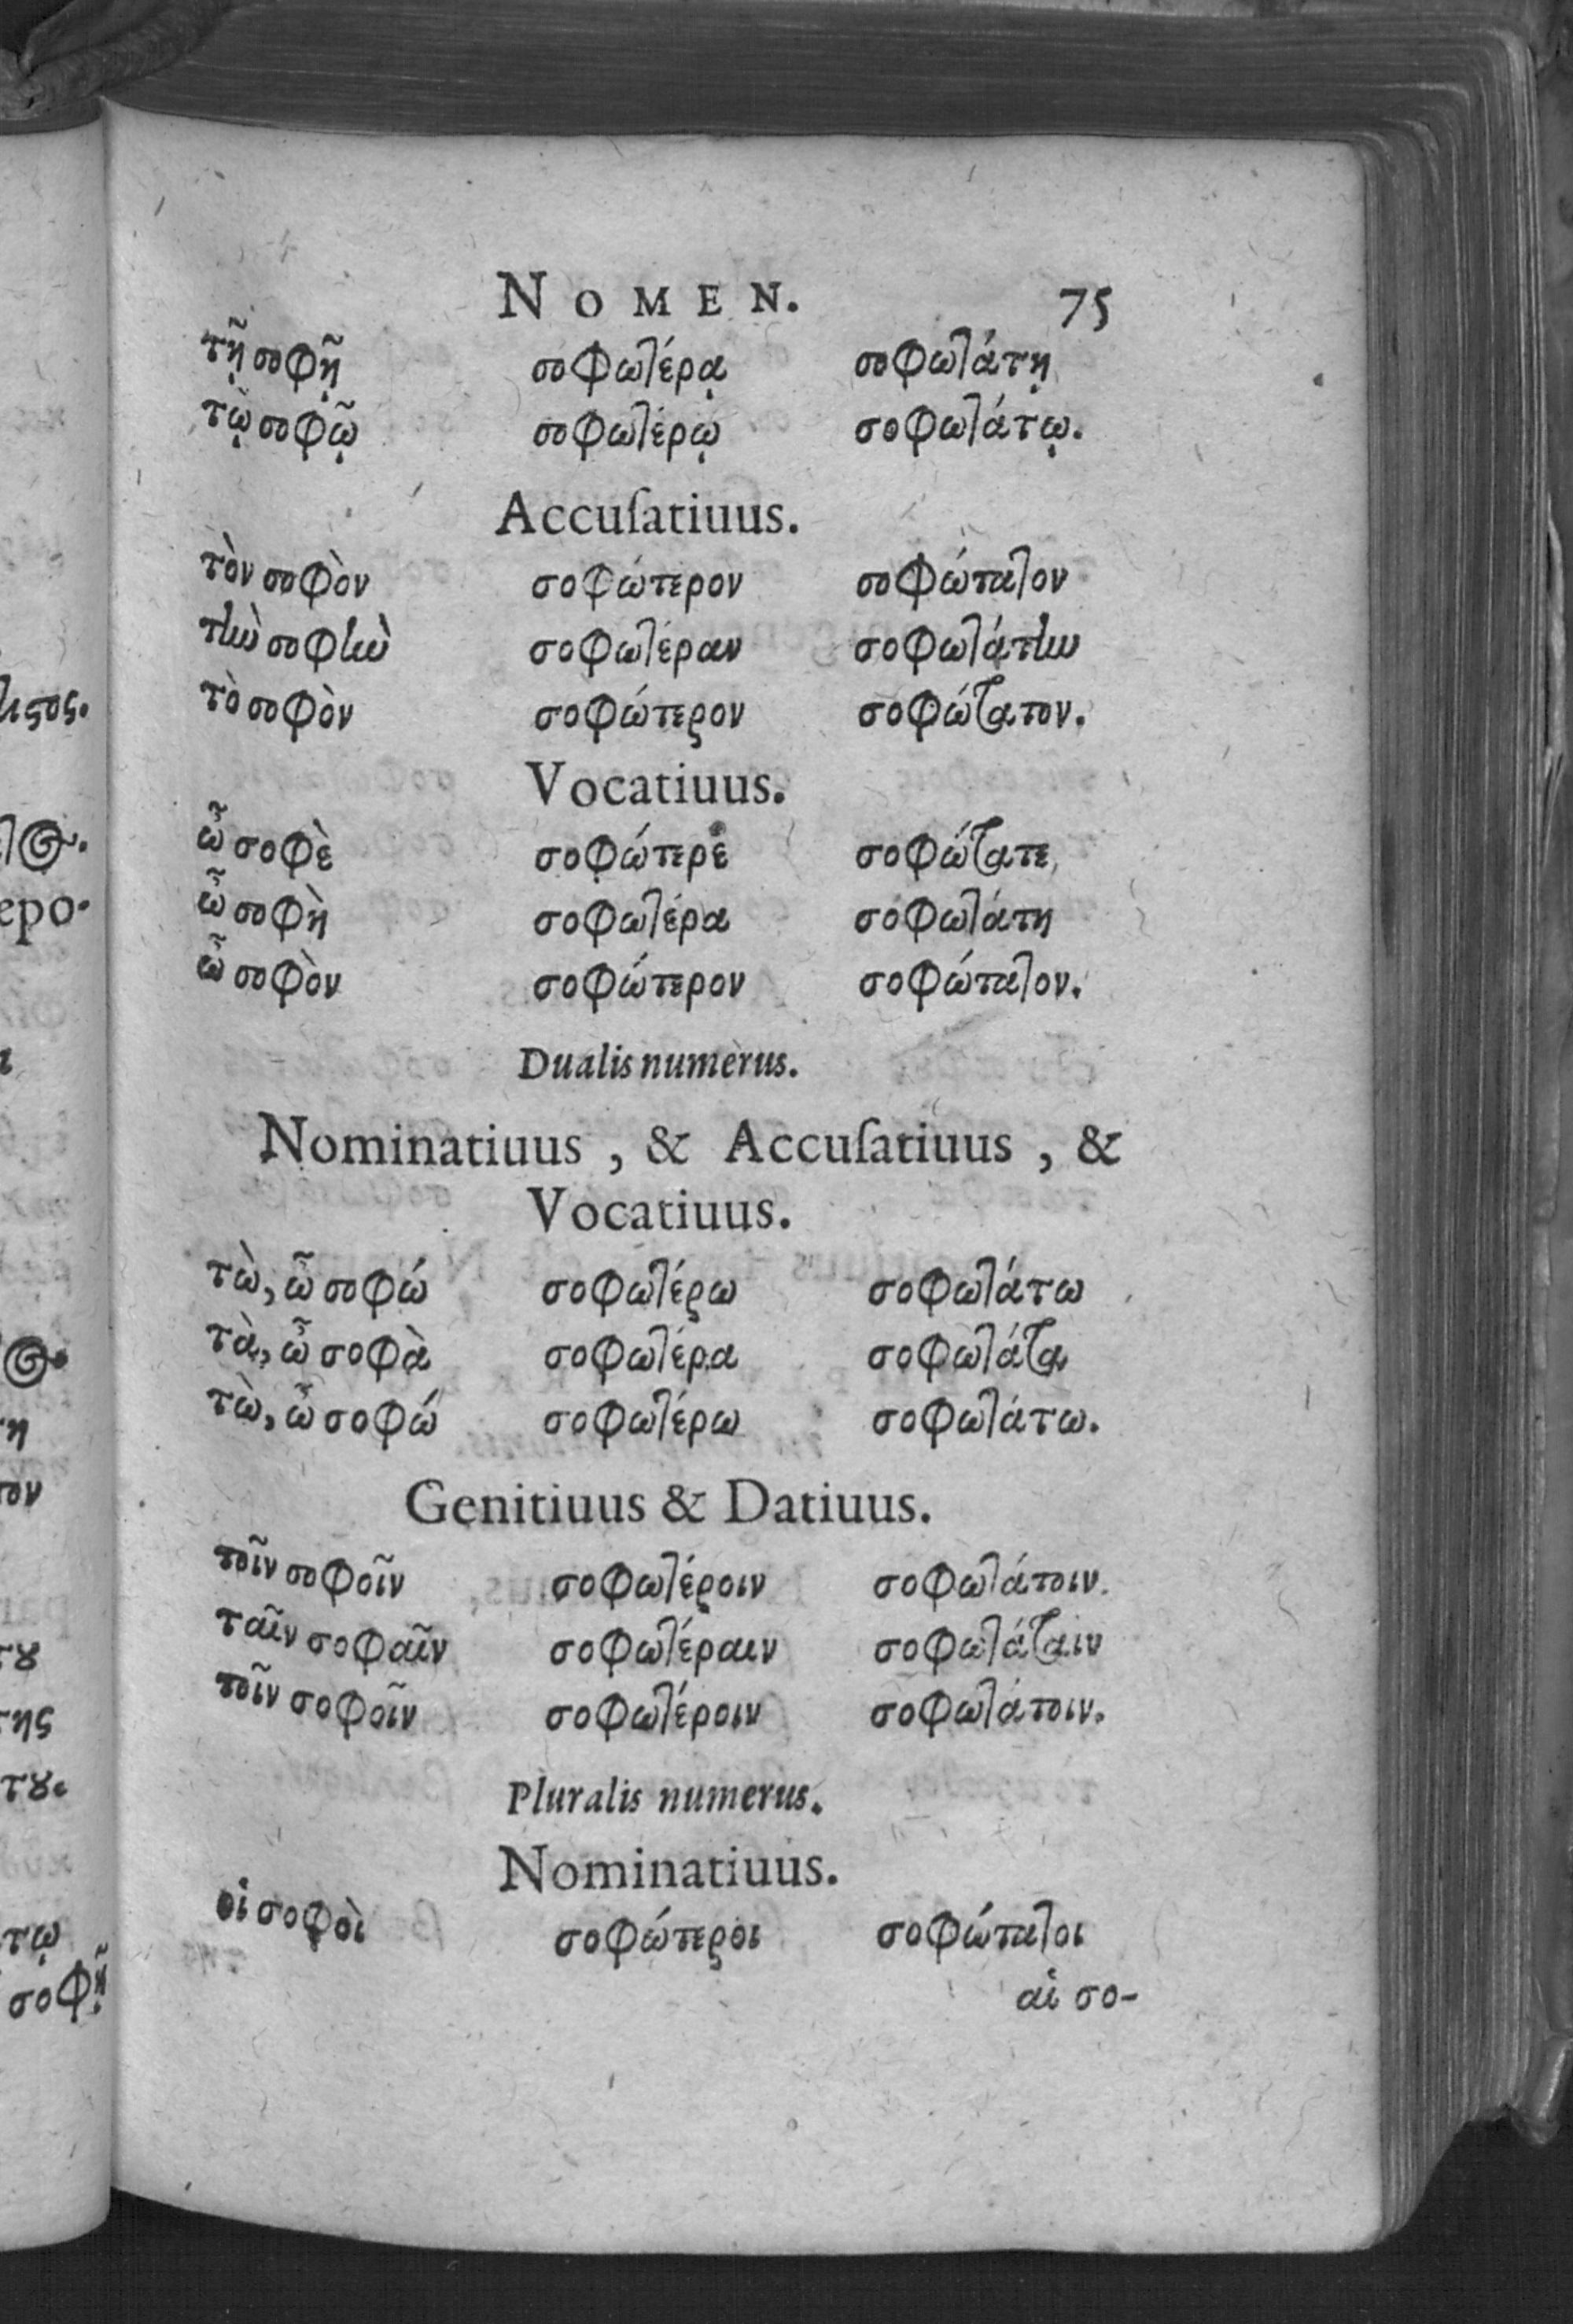 NOMEN. 75
τῇ σοφῇ σοφωτέρᾳ σοφωτάτῃ
τῷ σοφῷ σοφωτέρῳ σοφωτάτῳ.
Accuſatiuus.
τὸν σοφὸν σοφώτερον σοφώτατον
τὴν σοφὴν σοφωτέραν σοφωτάτην
τὸ σοφὸν σοφώτερον σοφώτατον.
Vocatiuus.
ὦ σοφὲ σοφώτερε σοφώτατε
ὦ σοφὴ σοφωτέρα σοφωτάτη
ὦ σοφὸν σοφώτερον σοφώτατον.
Dualis numerus.
Nominatiuus , & Accuſatiuus , &
Vocatiuus.
τὼ, ὦ σοφώ σοφωτέρω σοφωτάτω
τὰ, ὦ σοφὰ σοφωτέρα σοφωτάτα
τὼ, ὦ σοφώ σοφωτέρω σοφωτάτω.
Genitiuus & Datiuus.
τοῖν σοφοῖν σοφωτέροιν σοφωτάτοιν.
ταῖν σοφαῖν σοφωτέραιν σοφωτάταιν
τοῖν σοφοῖν σοφωτέροιν σοφωτάτοιν.
Pluralis numerus.
Nominatiuus.
οἱ σοφοὶ σοφώτεροι σοφώτατοι
αἱ σο-